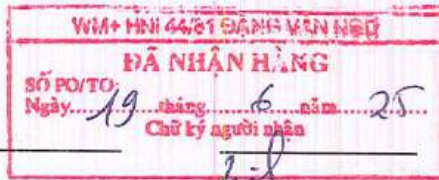 WM+ HNI 44/61 ĐẶNG VĂN NGỮ
ĐÃ NHẬN HÀNG
SỐ PO/TO:
Ngày 19 tháng 6 năm 25
Chữ ký người nhận